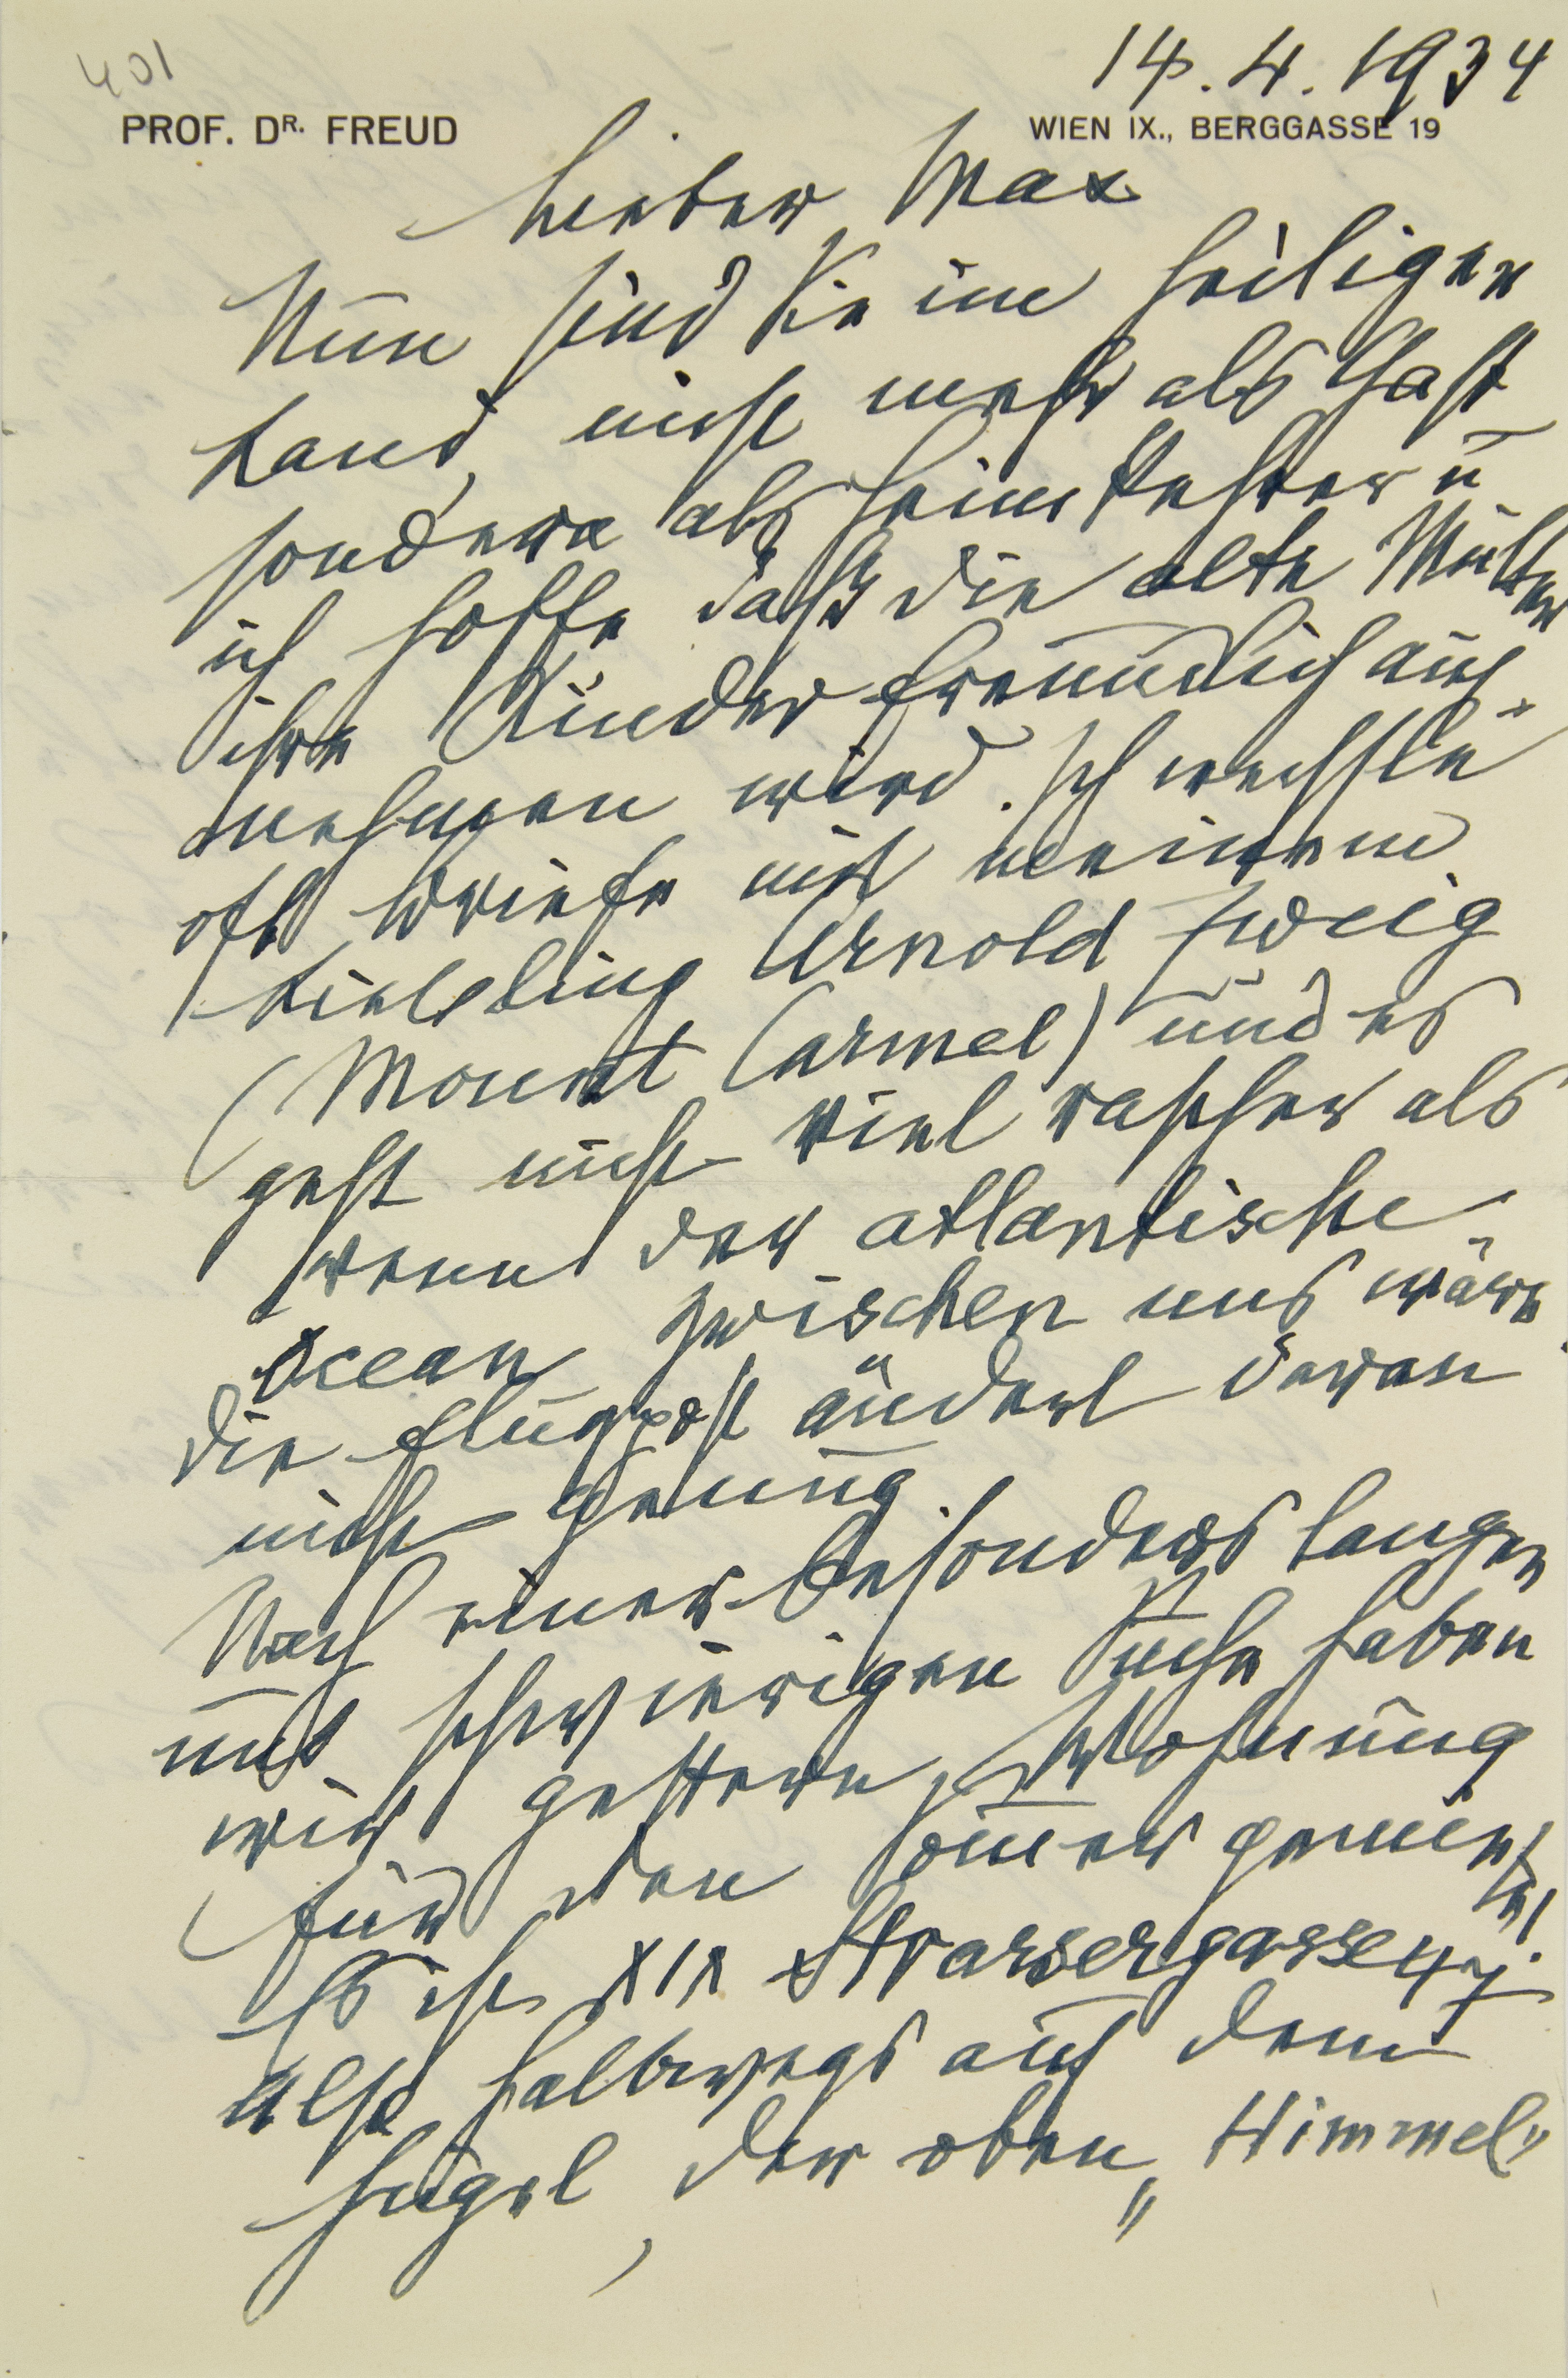 401
14.4.1934
PROF. DR. FREUD WIEN IX., BERGGASSE 19
Lieber Max
Nun sind Sie im heiligen
Land, nicht mehr als Gast
sondern als heimkehrer u
ich hoffe daß die alte Mutter
ihre Kinder freundlich auf-
nehmen wird. Ich wechsle
oft Briefe mit meinem
Liebling Arnold Zweig
(Mount Carmel) und es
geht nicht viel rascher als
wenn der atlantische
Ocean zwischen uns wäre.
Die Flugpost ändert daran
nicht genug.
Nach einer besonders langen
und schwierigen Suche haben
wir gestern Wohnung
für den Som̄er gemie-
tet.
Es ist XIX Strassergasse 47.
Also halbwegs auf dem
Hügel, der oben „Himmel"